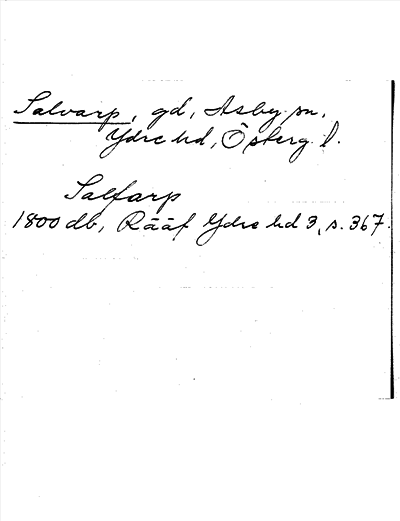 Salvarp, gd, Asby sn,
Ydre hd, Österg. l.
Salfarp
1800 db, Rääf Ydre hd 3, s. 367.